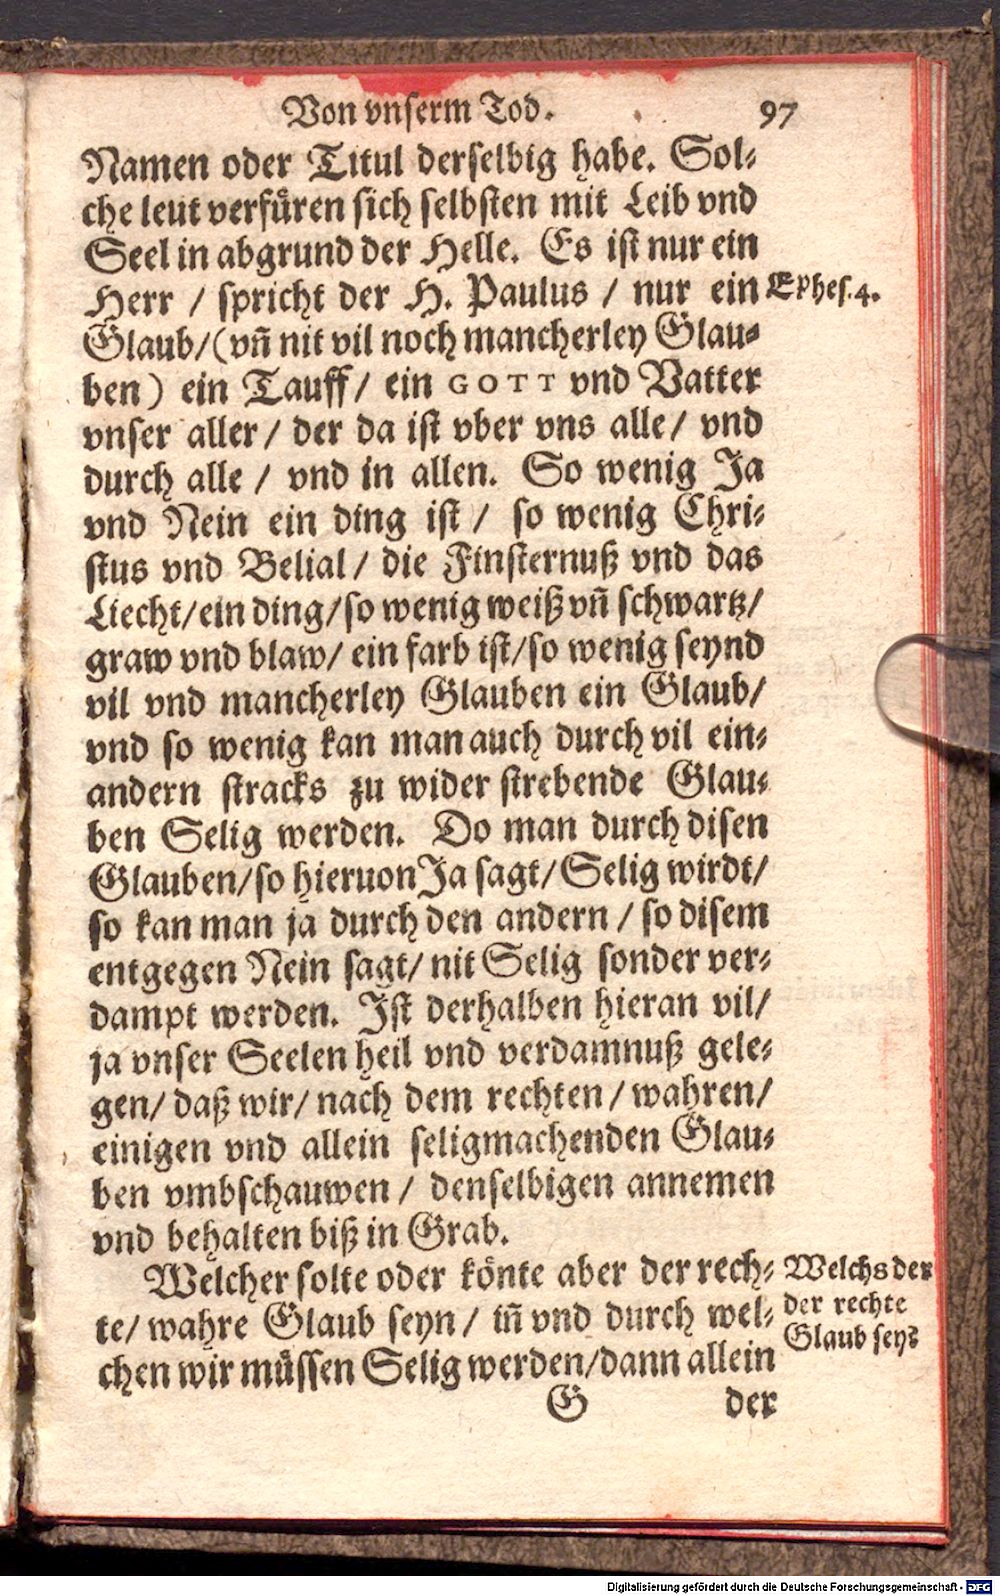 Von vnserm Tod. 97
Namen oder Titul derselbig habe. Sol-
che leut verfüren sich selbsten mit Leib vnd
Seel in abgrund der Helle. Es ist nur ein
Herr / spricht der H. Paulus / nur ein
Ephes. 4.
Glaub/ (vñ nit vil noch mancherley Glau-
ben) ein Tauff/ ein GOTT vnd Vatter
vnser aller/ der da ist vber vns alle/ vnd
durch alle / vnd in allen. So wenig Ja
vnd Nein ein ding ist / so wenig Chri-
stus vnd Belial/ die Finsternuß vnd das
Liecht/ ein ding/ so wenig weiß vñ schwartz/
graw vnd blaw/ ein farb ist/ so wenig seynd
vil vnd mancherley Glauben ein Glaub/
vnd so wenig kan man auch durch vil ein-
andern stracks zu wider strebende Glau-
ben Selig werden. Do man durch disen
Glauben/ so hieruon Ja sagt/ Selig wirdt/
so kan man ja durch den andern / so disem
entgegen Nein sagt/ nit Selig sonder ver-
dampt werden. Ist derhalben hieran vil/
ja vnser Seelen heil vnd verdamnuß gele-
gen/ daß wir/ nach dem rechten / wahren/
einigen vnd allein seligmachenden Glau-
ben vmbschauwen / denselbigen annemen
vnd behalten biß in Grab.
Welcher solte oder könte aber der rech-
te/ wahre Glaub seyn / iñ vnd durch wel-
chen wir müssen Selig werden/ dann allein
Welchs der
der rechte
Glaub sey?
G der
Digitalisierung gefördert durch die Deutsche Forschungsgemeinschaft - DFG